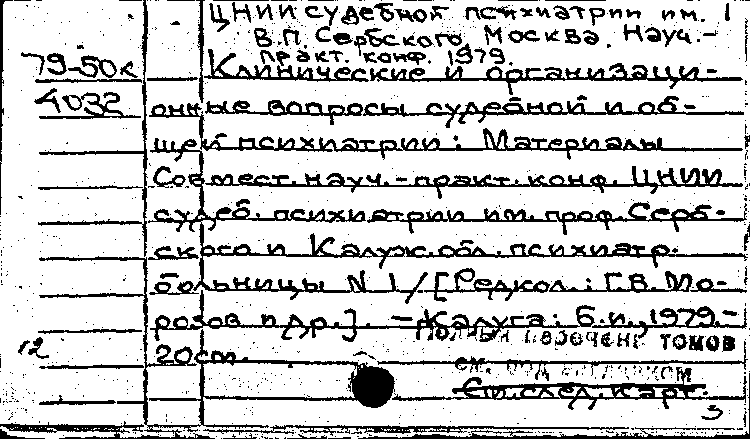 ЦНИИ судебной психиатрии им.
В.П. Сербского, Москва. Науч.-
практ. конф. 1979.
79-50к
Клинические и организаци-
4032
онные вопросы судебной и об-
щей психиатрии: Материалы
Совмест. науч.-практ. конф. ЦНИИ
судеб. психиатрии им. проф. Серб-
ского и Калуж. обл. психиатр.
больницы N 1/[Редкол.: Г.В. Мо-
розов и др.]. - Калуга: Б.и., 1979.-
Полный перечень томов
12
20см.
см. под
См. след. карт.
3